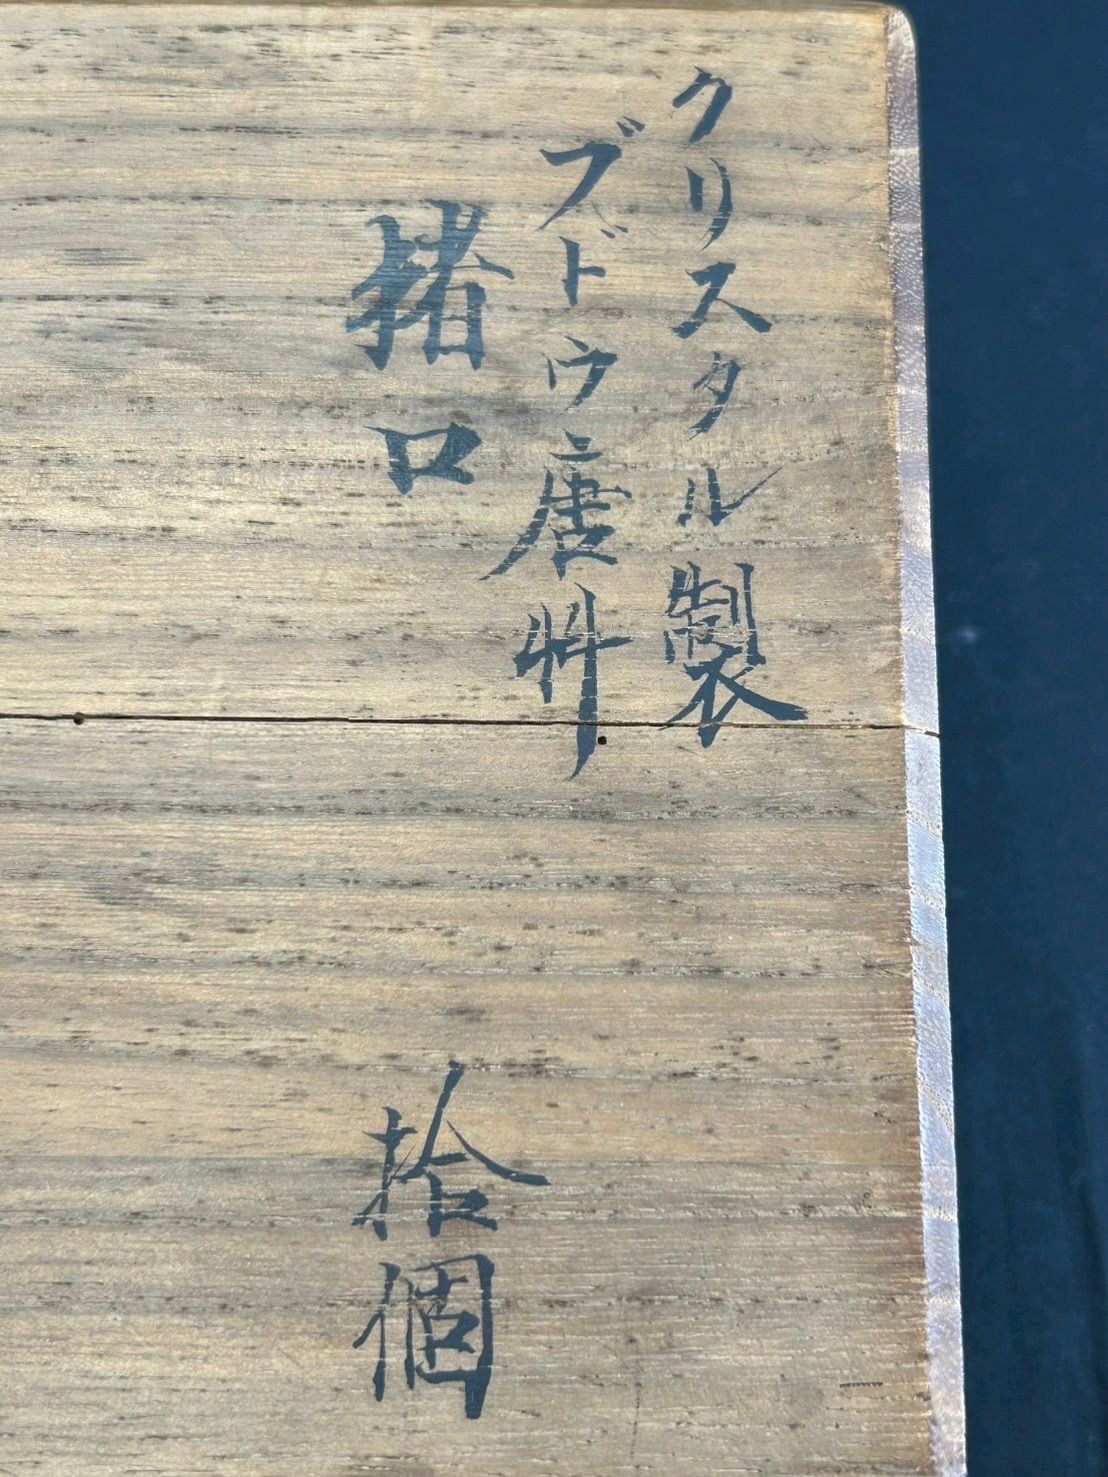 クリスタル製
ブドウ唐艸
猪口 拾個